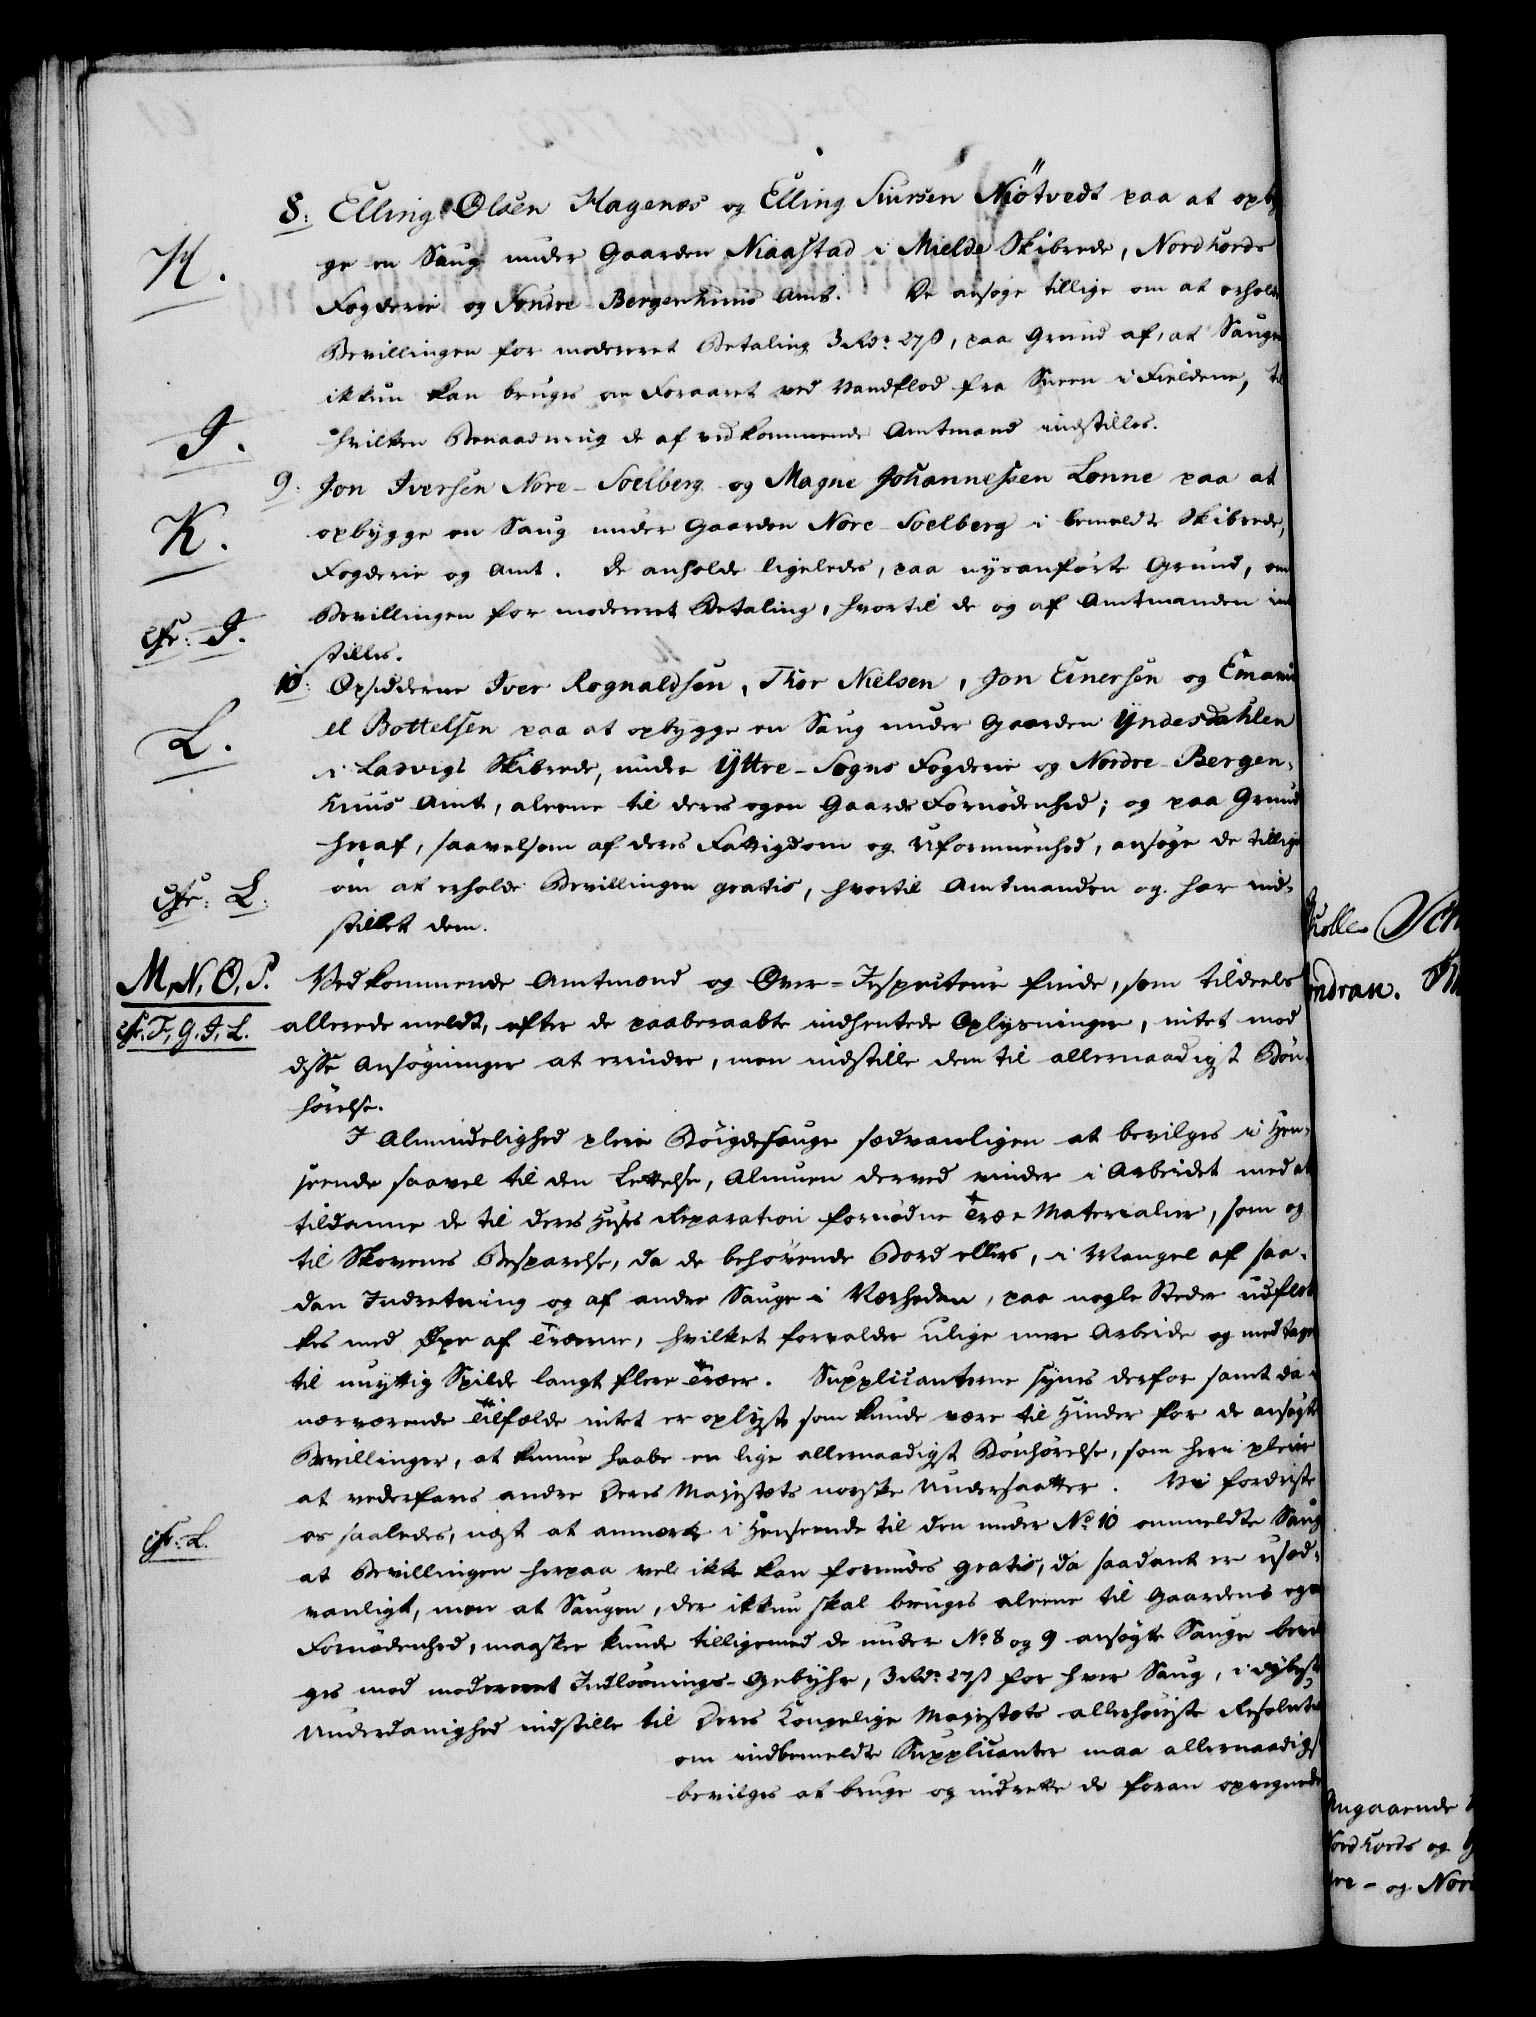 8. Elling Olsen Hagenæs og Elling Siursen Niøtvedt paa at opbyg-
H.
ge en Saug under Gaarden Niaastad i Mielde Skibrede, Nordhords
Fogderie og Søndre Bergenhuus Amt. De ansøge tillige om at erholde
Bevillingen for modereret Betaling 3 Rdr 27 ß, paa Grund af, at Saugen
ikkun kan bruges om Foraaret ved Vandflod fra Sneen i Fieldene, til
I.
hvilken Benaadning de af vedkommende Amtmand indstilles.
9. Jon Iversen Nore-Soelberg og Magne Johannessen Lonne paa at
K.
opbygge en Saug under Gaarden Nore-Soelberg i bemeldte Skibrede,
Fogderie og Amt. De anholde ligeledes, paa nysanførte Grund, om
cfr: I.
Bevillingen for modereret Betaling, hvortil de og af Amtmanden ind
stilles.
10. Opsidderne Iver Rognaldsen, Thor Nielsen, Jon Einersen og Emanu
L.
el Bottelsen paa at opbygge en Saug under Gaarden Yndesdahlen
i Ladvigs Skibrede, under Yttre-Sogns Fogderie og Nordre-Bergen-
huus Amt, alene til deres egen Gaards Fornødenhed; og paa Grund
heraf, saavelsom af deres Fattigdom og Uformuenhed, ansøge de tillige
cfr: L.
om at erholde Bevillingen gratis, hvortil Amtmanden og har ind-
stillet dem.
M, N, O, P.
Vedkommende Amtmænd og Over-Inspecteur finde, som tildeels
cfr. F, G, I, L.
allerede meldt, efter de paaberaabte indhentede Oplysninger, intet mod
disse Ansøgninger at erindre, men indstille dem til allernaadigst Bøn-
hørelse.
I Almindelighed pleie Bøigdesauge sædvanligen at bevilges i Hen-
seende saavel til den Lettelse, Almuen derved vinder i Arbeidet med at
tildanne de til deres Huses Reparation fornødne Træe Materialier, som og
til Skovenes Besparelse, da de behøvende Bord ellers, i Mangel af saa-
dan Indretning og af andre Sauge i Nærheden, paa nogle Steder udflek
kes med Øxe af Træerne, hvilket forvolder ulige mere Arbeide og medtager
til unyttig Spilde langt flere Træer. Supplicanterne synes derfor samt da i
nærværende Tilfælde intet er oplyst som kunde være til Hinder for de ansøgte
Bevillinger, at kunne haabe en lige allernaadigst Bønhørelse, som heri pleier
at vederfares andre Deres Majestæts norske Undersaatter. Vi fordriste
cfr: L.
os saaledes, næst at anmærke i Henseende til den under No 10 ommeldte Saug
at Bevillingen herpaa vel ikke kan forundes gratis, da saadant er usæd-
vanligt, men at Saugen, der ikkun skal bruges alene til Gaardens egen
Fornødenhed, maaskee kunde tilligemed de under No 8 og 9 ansøgte Sauge bevil
ges mod modereret Indløsnings-Gebyhr, 3 Rdr 27 ß for hver Saug, i dybeste
Underdanighed indstille til Deres Kongelige Majestæts allerhøieste Resolution
om indbemeldte Supplicanter maa allernaadigst
bevilges at bruge og indrette de foran opregnede
Angaaende
Nordhords og
dre- og Nor